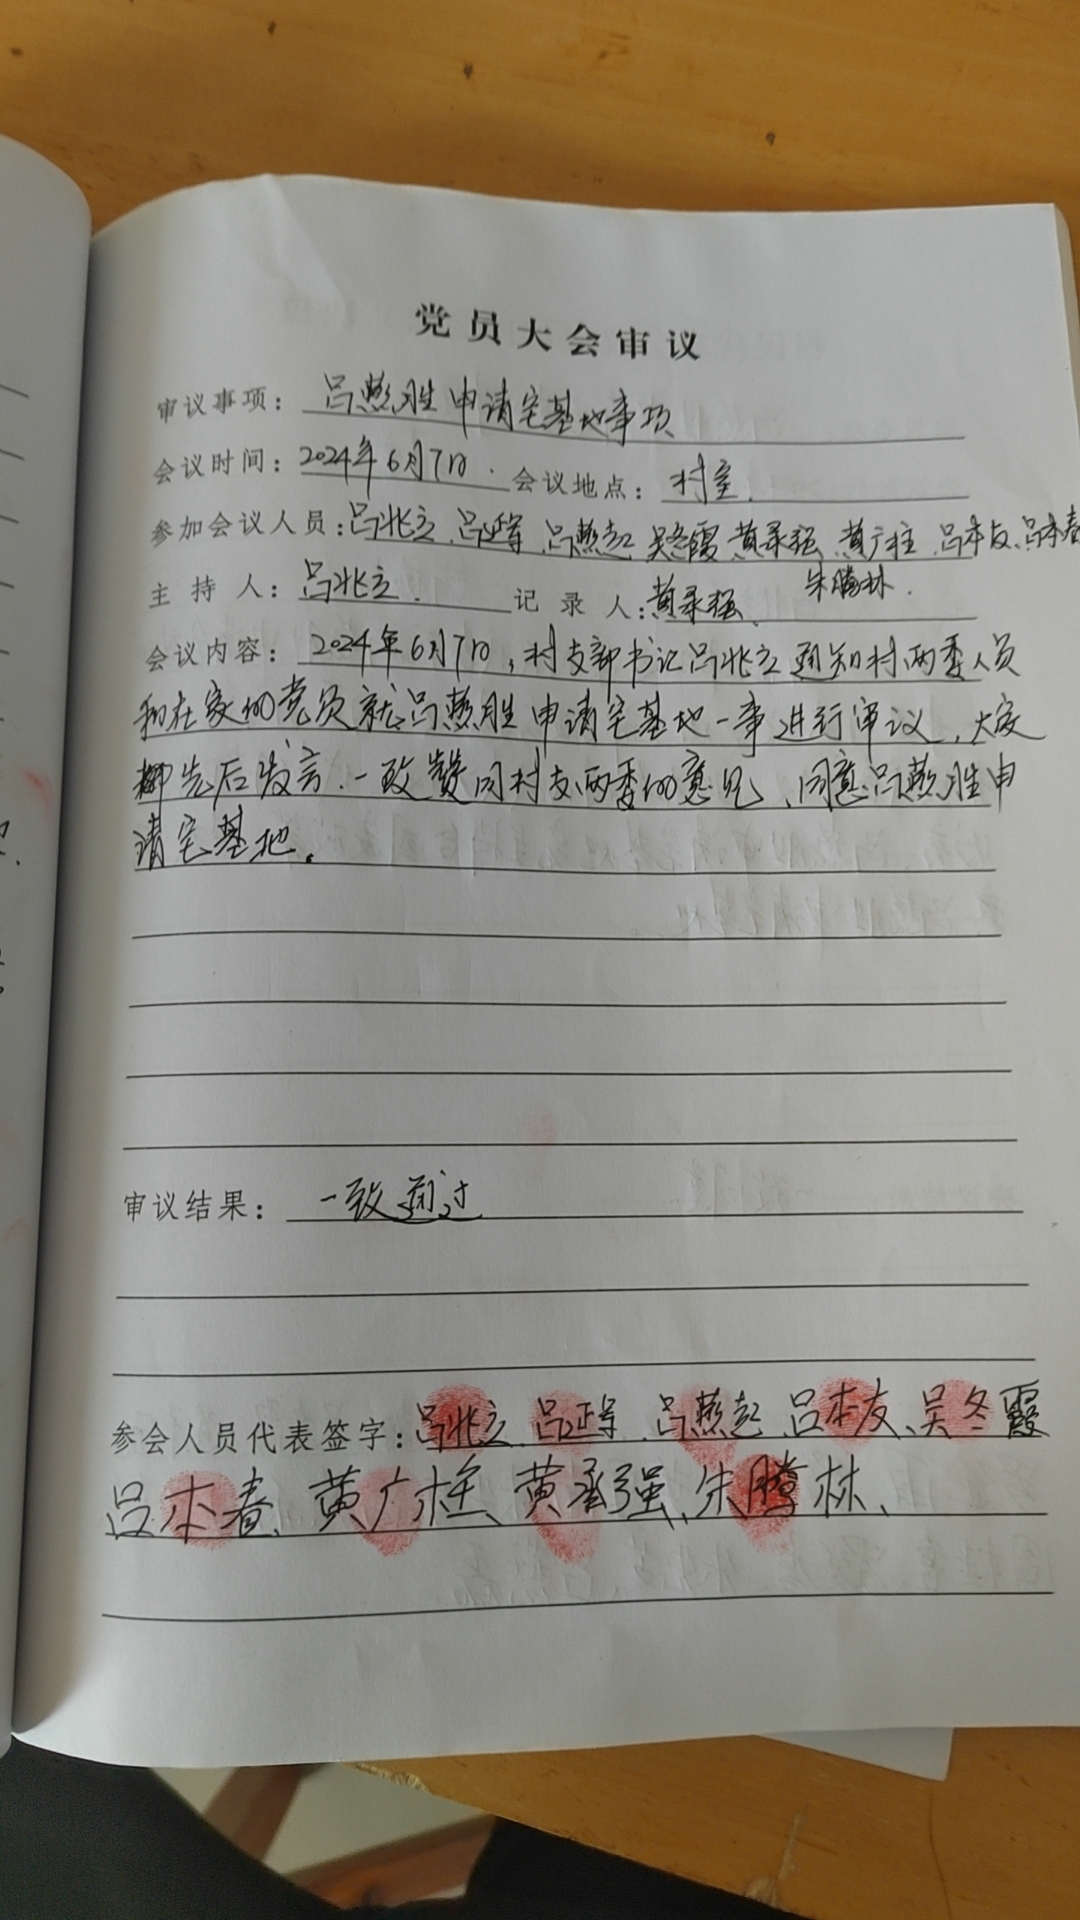 党员大会审议
审议事项: 吕燕胜申请宅基地事项
会议时间: 2024年6月7日. 会议地点: 村室.
参加会议人员: 吕兆立、吕延军、吕燕起、吴冬霞、黄承强、黄广柱、吕本友、吕本春
朱腾林.
主持人: 吕兆立. 记录人: 黄承强.
会议内容: 2024年6月7日,村支部书记吕兆立通知村两委人员
和在家的党员就吕燕胜申请宅基地一事进行审议,大家
先后发言.一致赞同村支两委的意见、同意吕燕胜申
请宅基地。
审议结果: 一致通过
参会人员代表签字: 吕兆立、吕延军、吕燕起、吕本友、吴冬霞
吕本春、黄广柱、黄承强、朱腾林、